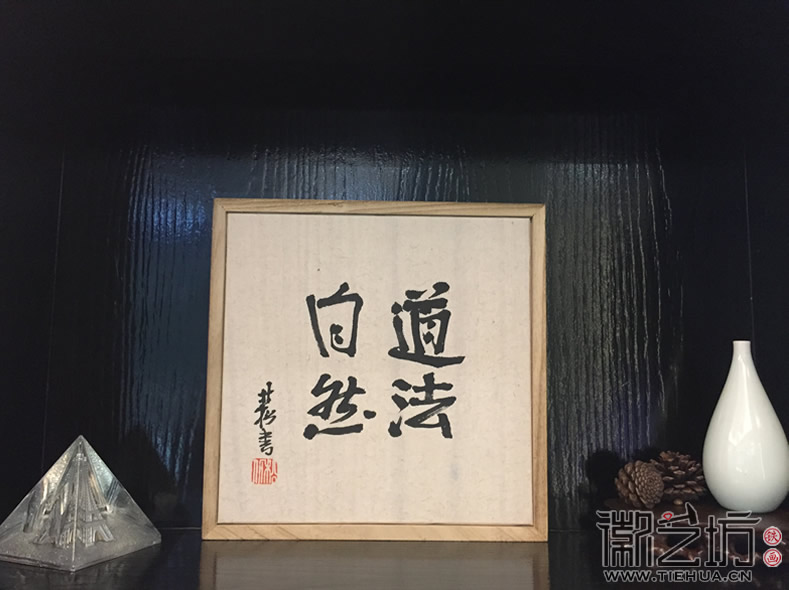 道法
自然
徽艺坊
铁画
WWW.TIEHUA.CN